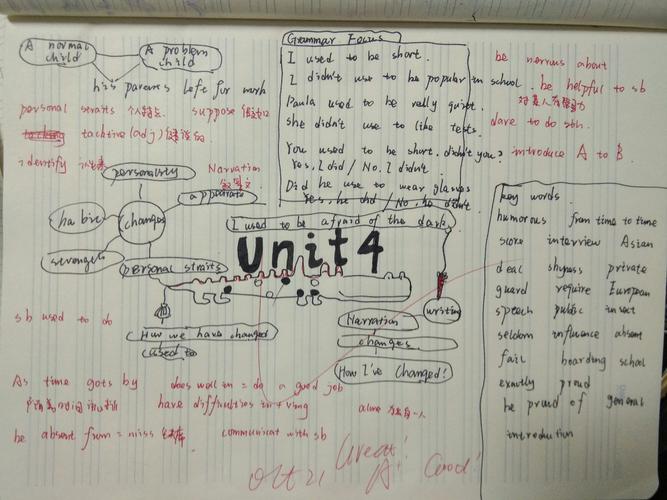 A normal child
A problem child
his parents left for work
personal straits 个人特点
suppose
tacktive (adj)
identify
Narration
记叙文
personality
appearate
habit
changes
strength
personal straits
Grammar Focus
I used to be short.
I didn't use to be popular in school.
Paula used to be really quiet.
She didn't use to like tests.
You used to be short. didn't you?
Yes, I did / No. I didn't
Did he use to wear glasses
Yes, he did / No, he didn't
be nervous about
be helpful to sb
对某人有帮助
dare to do sth.
introduce A to B
I used to be afraid of the dark.
Unit4
writing
Narration
changes
How I've Changed!
How we have changed
used to
sb used to do
key words.
humorous from time to time
score interview Asian
deal shyness private
guard require European
speech public insect
seldom influence absent
fail boarding school
exactly proud
be proud of general
introduction
As time gots by
does well in = do a good job
have difficulties in + ving
alone
be absent from = miss
communicat with sb
Oct 21
Great!
A+
Good!